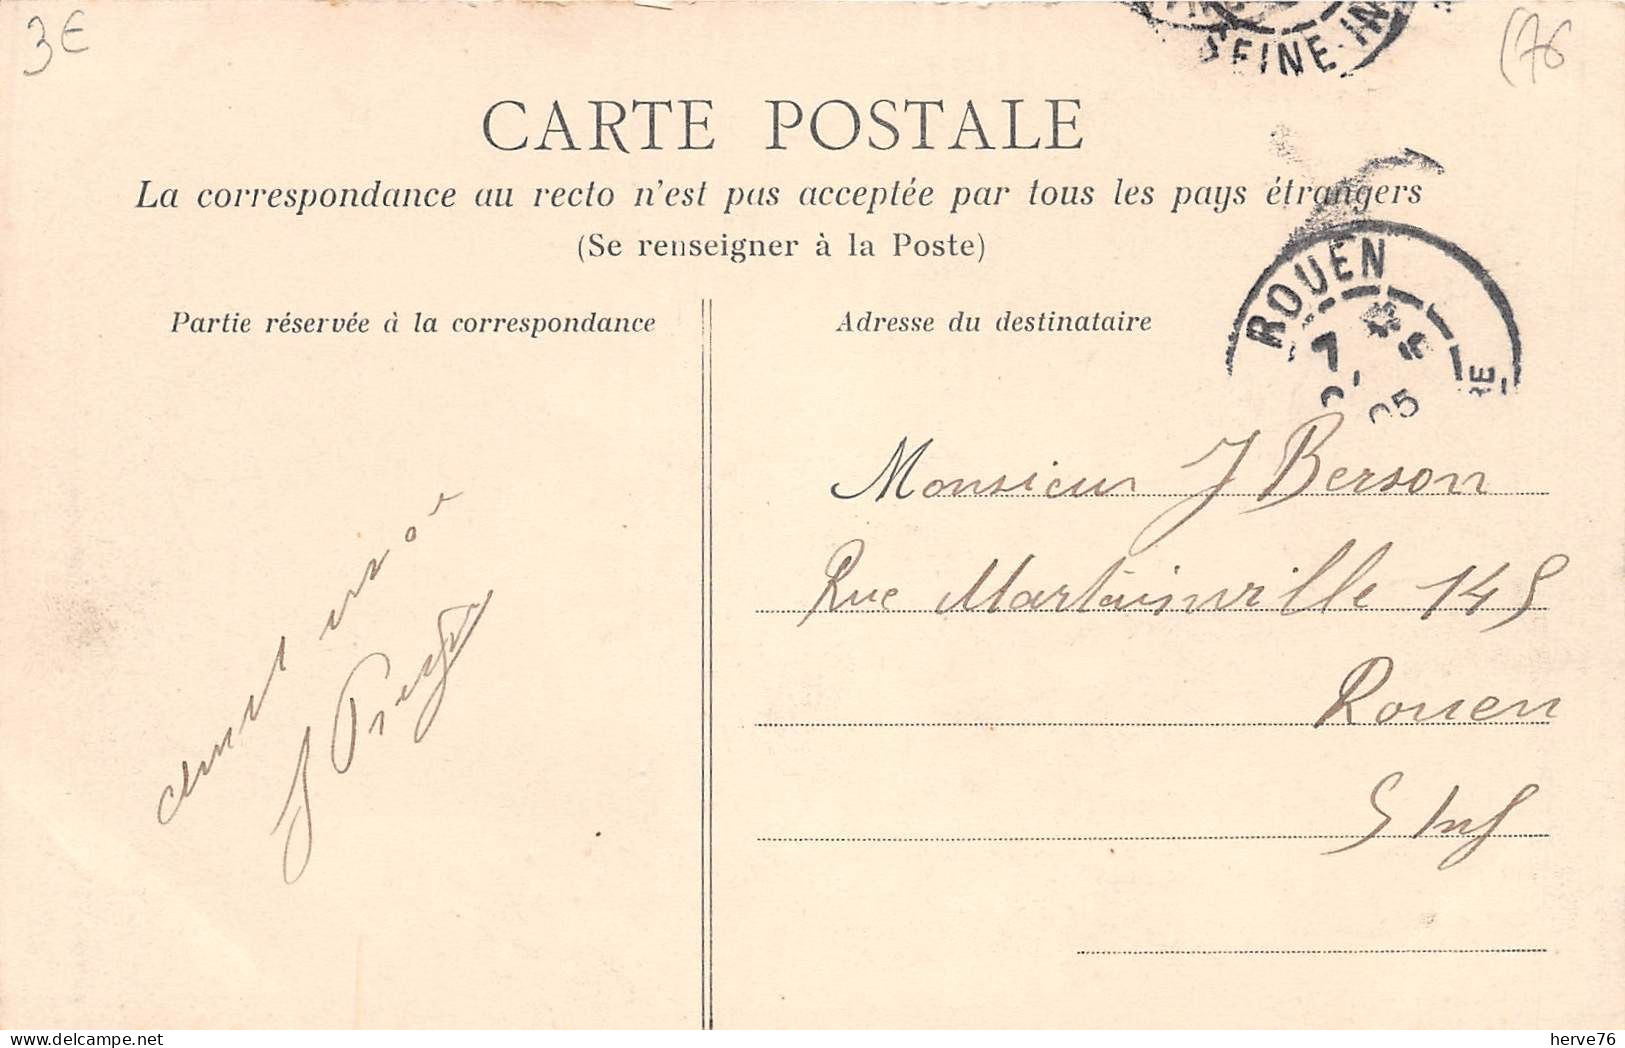 3€
(76
SEINE-IN
CARTE POSTALE
La correspondance au recto n'est pas acceptée par tous les pays étrangers
(Se renseigner à la Poste)
Partie réservée à la correspondance
Adresse du destinataire
ROUEN
7
05
RE
Monsieur J Berson
Rue Martainville 145
Rouen
S Inf
herve76